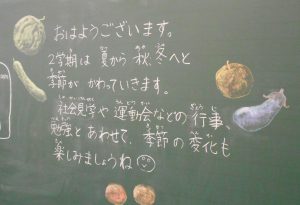 おはようございます。
2学期は 夏から 秋、冬へと
季節が かわっていきます。
社会見学や 運動会などの 行事、
勉強と あわせて、季節の 変化も
楽しみましょうね